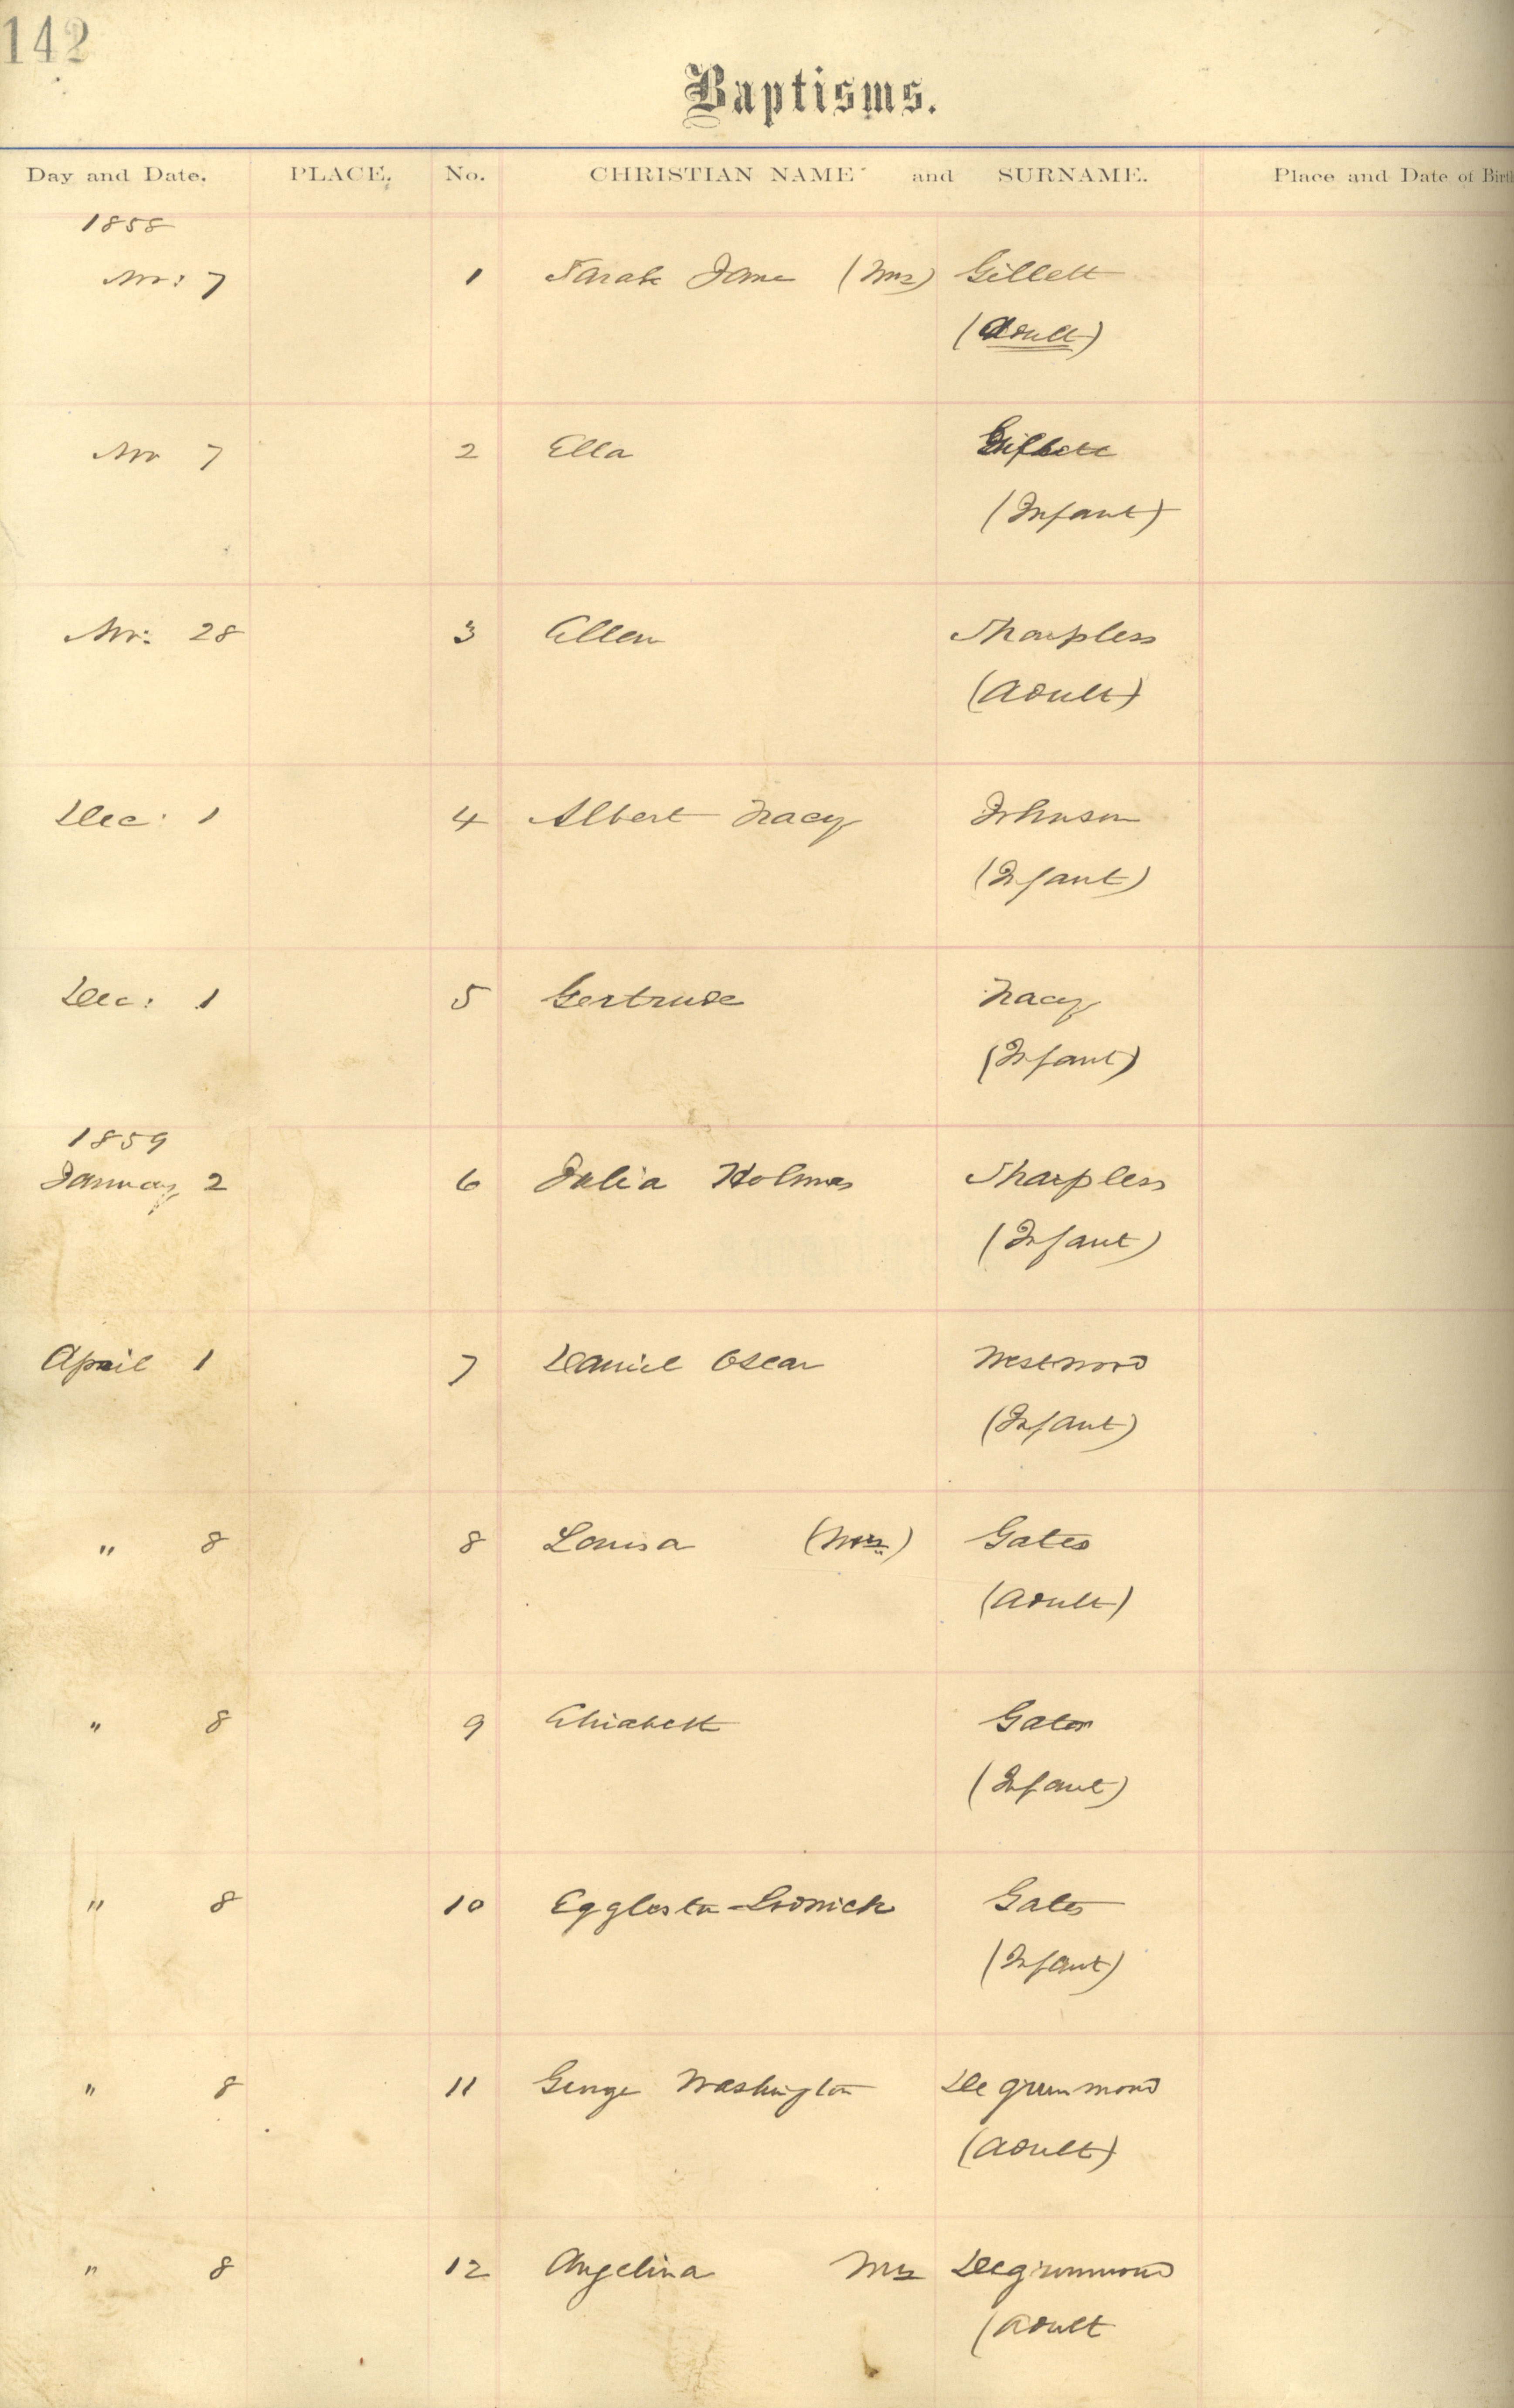 142
Baptisms.
Day and Date. PLACE. No. CHRISTIAN NAME and SURNAME. Place and Date of Birth
1858
Nov: 7 1 Sarah Jane (Mrs) Gillett
(Adult)
Nov 7 2 Ella
(Infant)
Nov: 28 3 Ellen Sharpless
(Adult)
Dec: 1 4 Albert Tracy Johnson
(Infant)
Dec: 1 5 Gertrude Tracy
(Infant)
1859
January 2 6 Julia Holmes Sharpless
(Infant)
April 1 7 Daniel Oscar Westwood
(Infant)
" 8 8 Louisa (Mrs.) Gates
(Adult)
" 8 9 Elizabeth Gates
(Infant)
" 8 10 Egglestn - Gates
(Infant)
" 8 11 George Washington Degrummond
(Adult)
" 8 12 Angelina Mrs Degrummond
(Adult